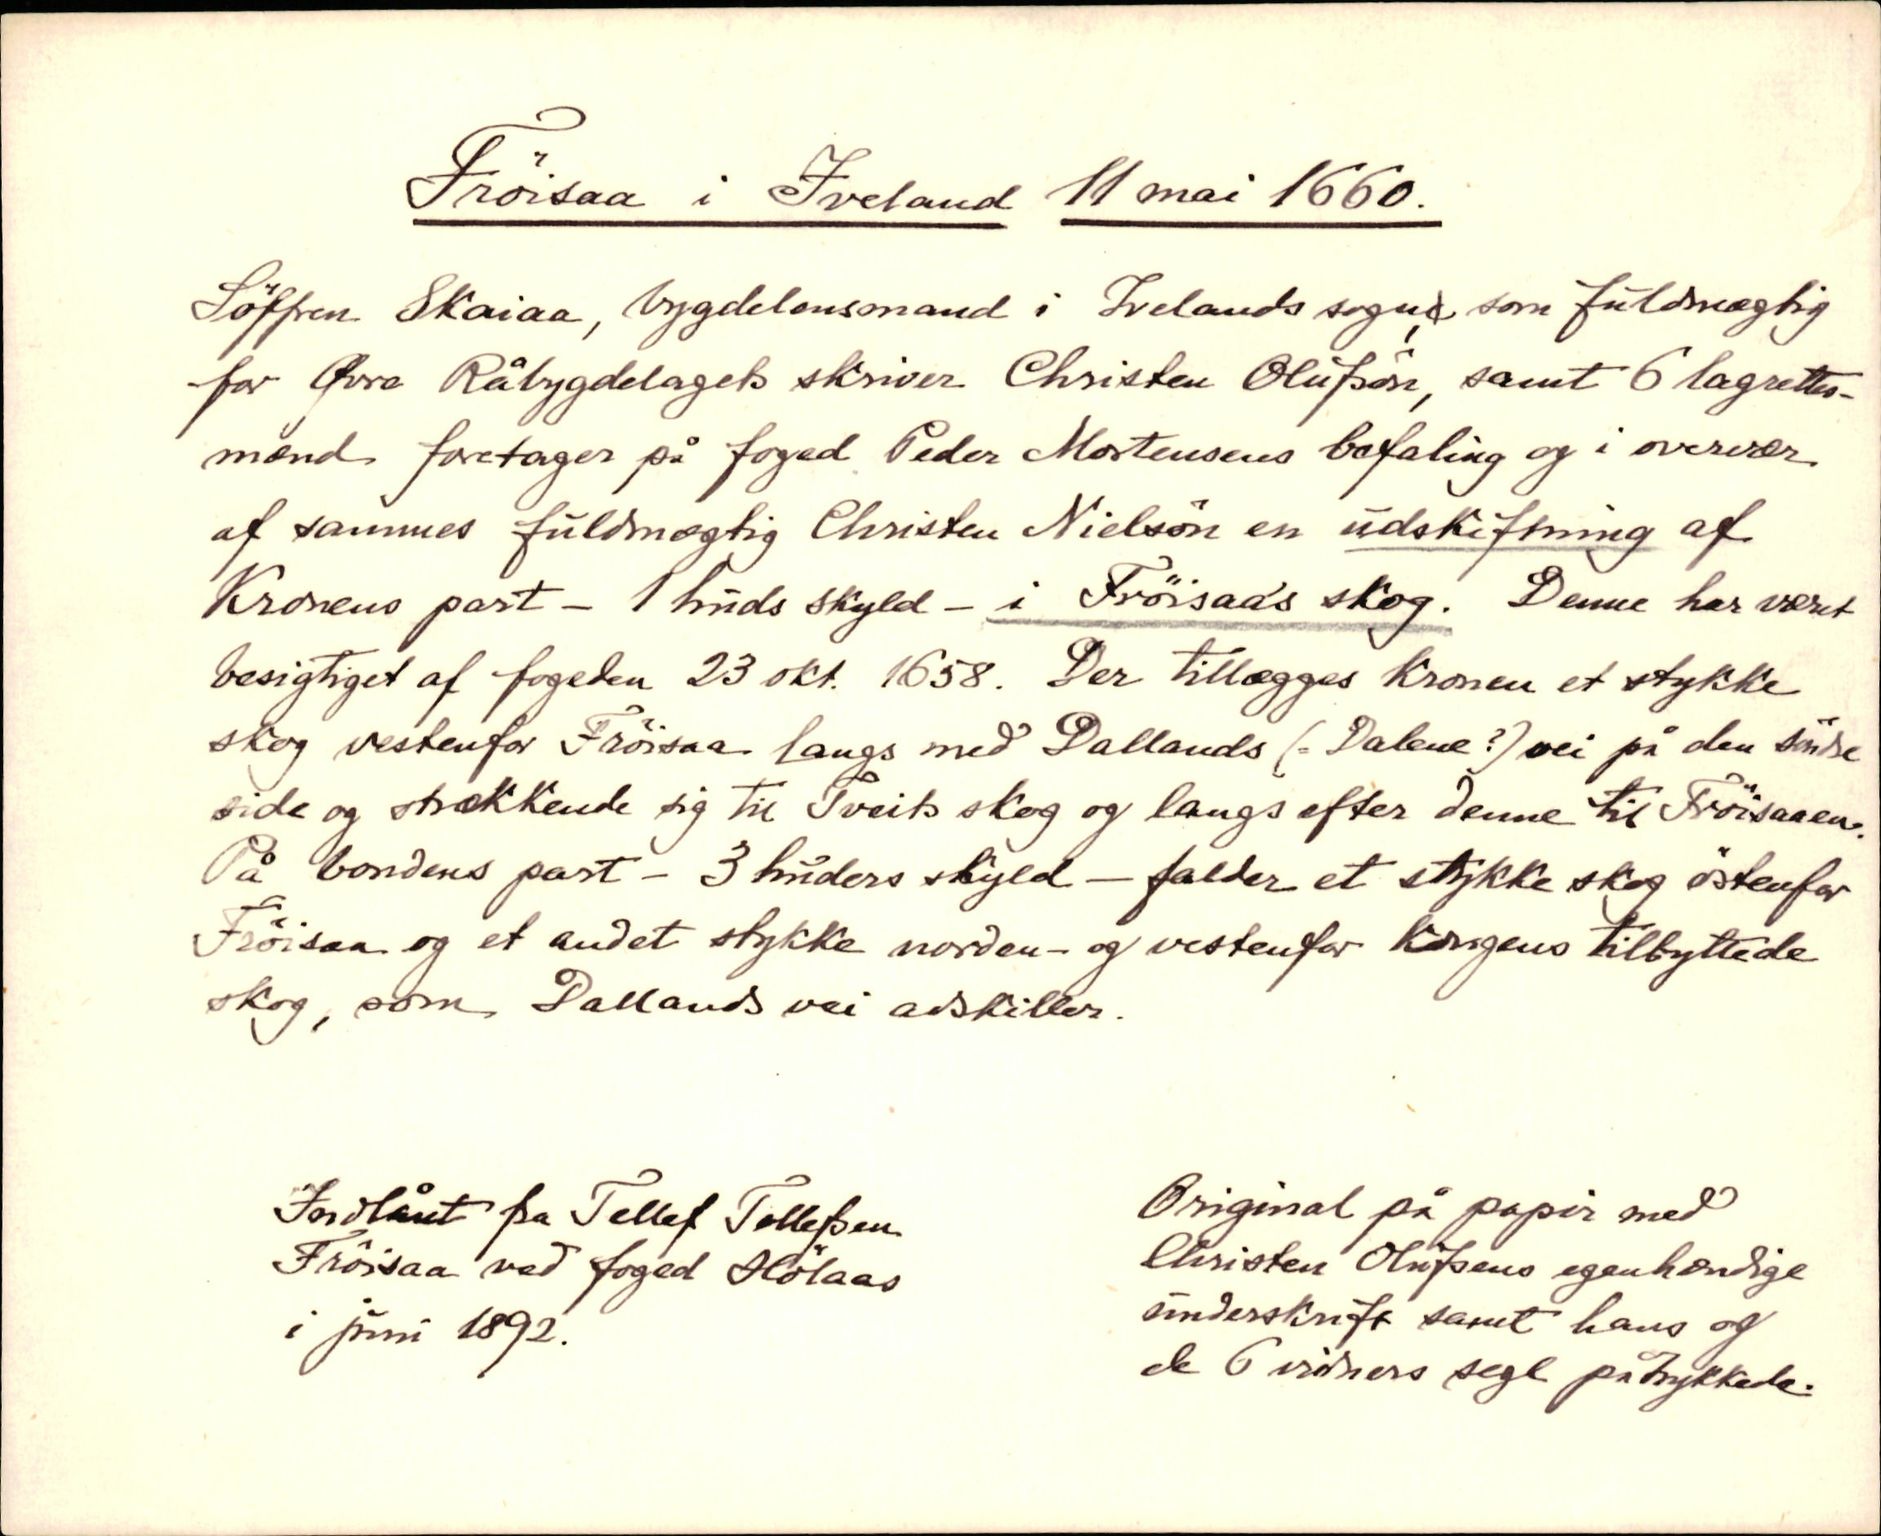 Fröisaa i Iveland 11 mai 1660.
Söffren Skaiaa, bygdelensmand i Ivelands sogn, som fuldmægtig
for Øvre Råbygdelagets skriver Christen Olufsön, samt 6 lagrettes-
mænd foretager på foged Peder Mortensens befaling og i overvær
af sammes fuldmægtig Christen Nielsön en udskiftning af
Kronens part - 1 huds skyld - i Fröisaa's skog. Denne har været
besigtiget af fogeden 23 okt. 1658. Der tillægges Kronen et stykke
skog vestenfor Fröisaa langs med Dallands (= Dalene?) vei på den söndre
side og strækkende sig til Tveits skog og langs efter denne til Fröisaaen.
På bondens part - 3 huders skyld - falder et stykke skog östenfor
Fröisaa og et andet stykke norden- og vestenfor Kongens tilbyttede
skog, som Dallands vei adskiller.
Indlånt fra Tellef Tellefsen
Fröisaa ved foged Hölaas
i juni 1892.
Original på papir med
Christen Olufsens egenhændige
underskrift samt hans og
de 6 vidners segl påtrykkede.